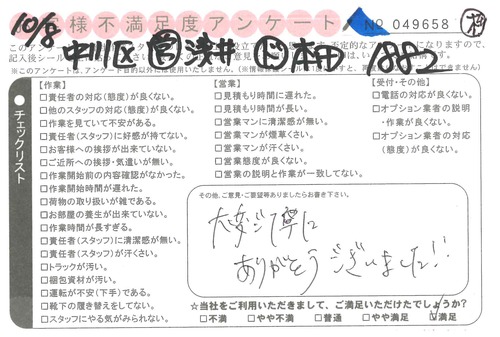 お客様不満足度アンケート
No 049658
10/8 中川区 浅井 本田
記入後シール
※このアンケートは、アンケート目的以外には使用いたしません。
チェックリスト
【作業】
□責任者の対応(態度)が良くない。
□他のスタッフの対応(態度)が良くない。
□作業を見ていて不安がある。
□責任者(スタッフ)に好感が持てない。
□お客様への挨拶が出来ていない。
□ご近所への挨拶・気遣いが無い。
□作業開始前の内容確認がなかった。
□作業開始時間が遅れた。
□荷物の取り扱いが雑である。
□お部屋の養生が出来ていない。
□作業時間が長すぎる。
□責任者(スタッフ)に清潔感が無い。
□責任者(スタッフ)が汗くさい。
□トラックが汚い。
□梱包資材が汚い。
□運転が不安(下手)である。
□靴下の履き替えをしてくれない。
□スタッフにやる気がみられない。
【営業】
□見積もり時間に遅れた。
□見積もり時間が長い。
□営業マンに清潔感が無い。
□営業マンが煙草くさい。
□営業マンが汗くさい。
□営業態度が良くない。
□営業の説明と作業が一致してない。
【受付・その他】
□電話の対応が良くない。
□オプション業者の説明・作業が良くない。
□オプション業者の対応(態度)が良くない。
その他、ご意見・ご要望等ありましたらお書き下さい。
大変ご丁寧に
ありがとうございました!!
☆当社をご利用いただきまして、ご満足いただけたでしょうか?
□不満 □やや不満 □普通 □やや満足 □満足